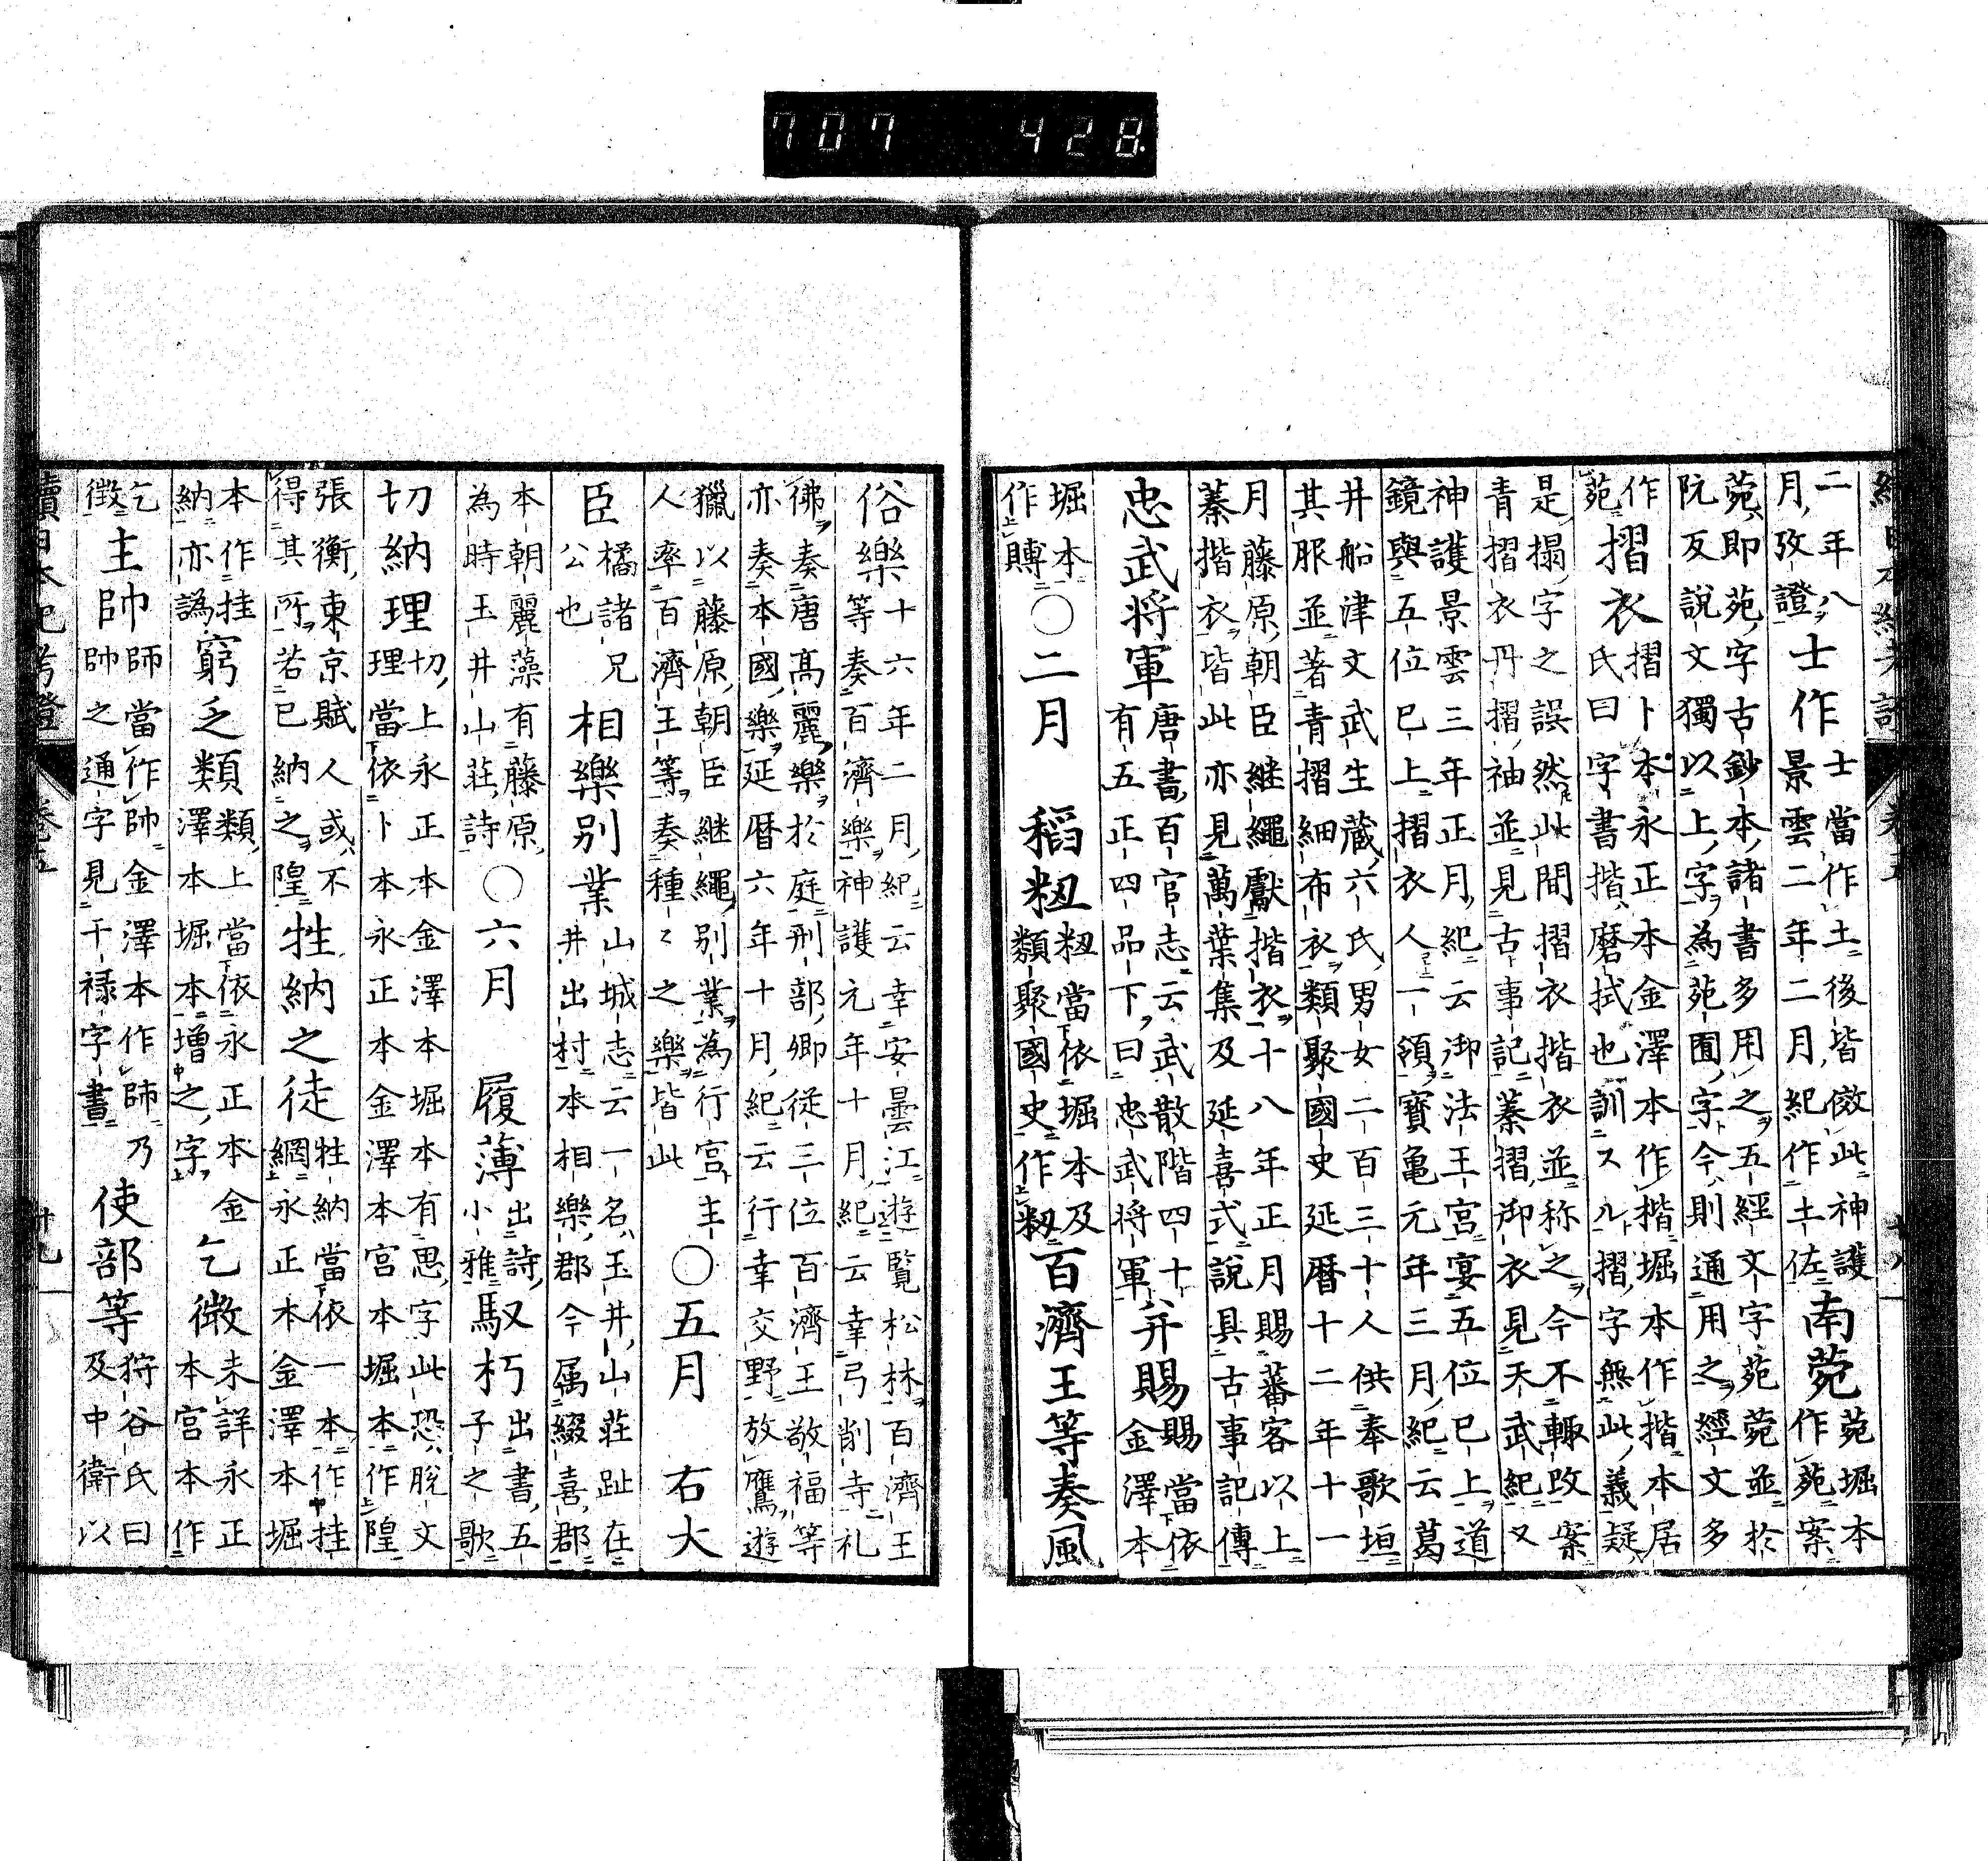 續日本紀考證 卷五 十八
二年八
月攷證
士作
士當作土後皆倣此神護
景雲二年二月紀作土佐
南菀
菀堀本
作苑案
菀即苑字古鈔本諸書多用之五經文字苑菀並於
阮反說文獨以上字為苑囿字今則通用之經文多
作
苑
摺衣
摺卜本永正本金澤本作揩堀本作揩本居
氏曰字書揩磨拭也訓スルト摺字無此義疑
是搨字之誤然此間摺衣揩衣並称之今不輙改案
青摺衣丹摺袖並見古事記蓁摺御衣見天武紀又
神護景雲三年正月紀云御法王宮宴五位已上道
鏡與五位已上摺衣人一領寶龜元年三月紀云葛
井船津文武生蔵六氏男女二百三十人供奉歌垣
其服並著青摺細布衣類聚國史延曆十二年十一
月藤原朝臣継繩獻揩衣十八年正月賜蕃客以上
蓁揩衣皆此亦見萬葉集及延喜式說具古事記傳
忠武将軍
唐書百官志云武散階四十
有五正四品下曰忠武将軍
并賜
賜當依
金澤本
堀本
作賻
〇二月 稻籾
籾當依堀本及
類聚國史作
百濟王等奏風
俗樂
十六年二月紀云幸安曇江遊覧松林百濟王
等奏百濟樂神護元年十月紀云幸弓削寺礼
佛奏唐高麗樂於庭刑部卿従三位百濟王敬福等
亦奏本國樂延暦六年十月紀云行幸交野放鷹遊
獵以藤原朝臣継繩別業為行宮主
人率百濟王等奏種々之樂皆此
〇五月 右大
臣
橘諸兄
公也
相樂別業
山城志云一名玉井山莊趾在
井出村本相樂郡今属綴喜郡
本朝麗藻有藤原
為時玉井山莊詩
〇六月 履薄
出詩
小雅
馭朽
出書五
子之歌
切納理
切上永正本金澤本堀本有思字此恐脫文
理當依卜本永正本金澤本宮本堀本作隍
張衡東京賦人或不
得其所若已納之隍
牲納之徒
牲納當依一本作挂
網永正本金澤本堀
本作挂
納亦譌
窮乏類
類上當依永正本金
澤本堀本增之字
乞徴
未詳永正
本宮本作
乞
徴
主帥
師當作帥金澤本作師
帥之通字見干禄字書
乃使部等
狩谷氏曰
及中衛以
續日本紀考證 卷五 十九